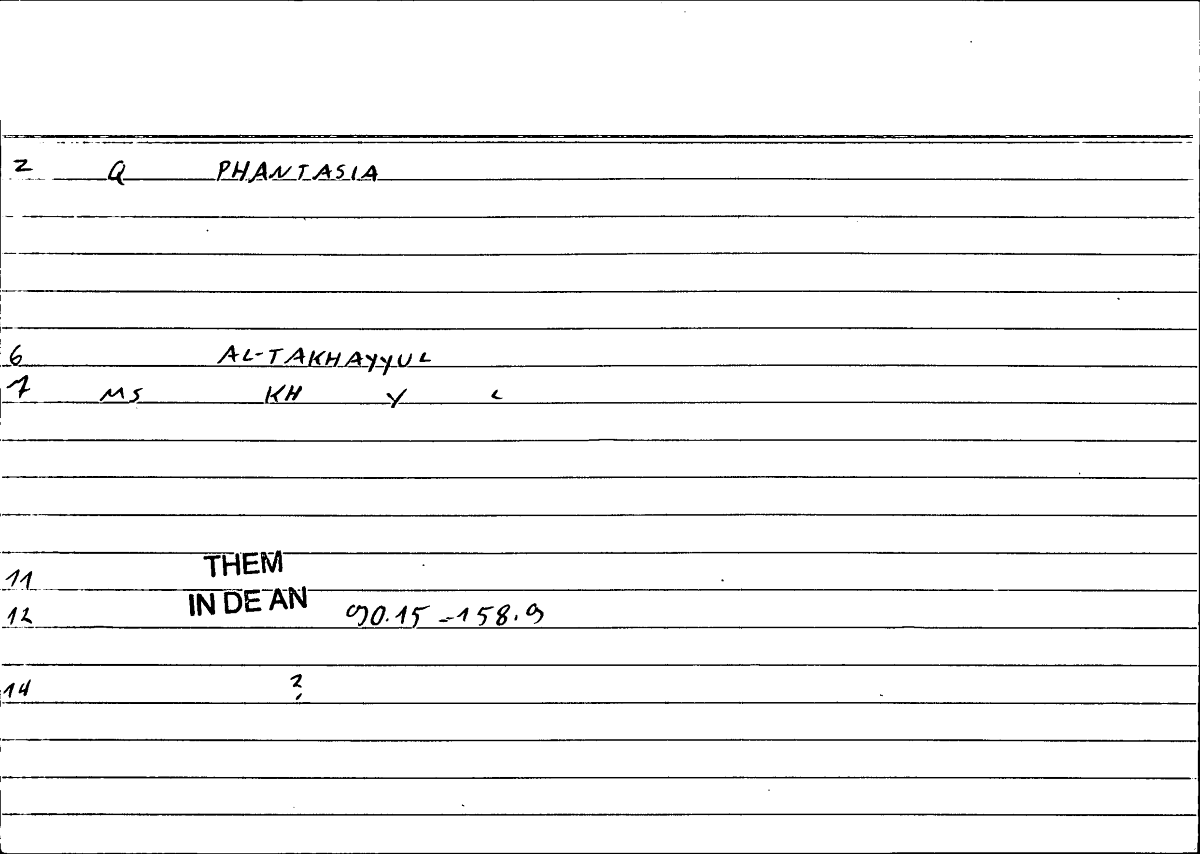 2 Q PHANTASIA
6 AL-TAKHAYYUL
7 MS KH Y L
11 THEM
12 IN DE AN 90.15-158.9
14 ?